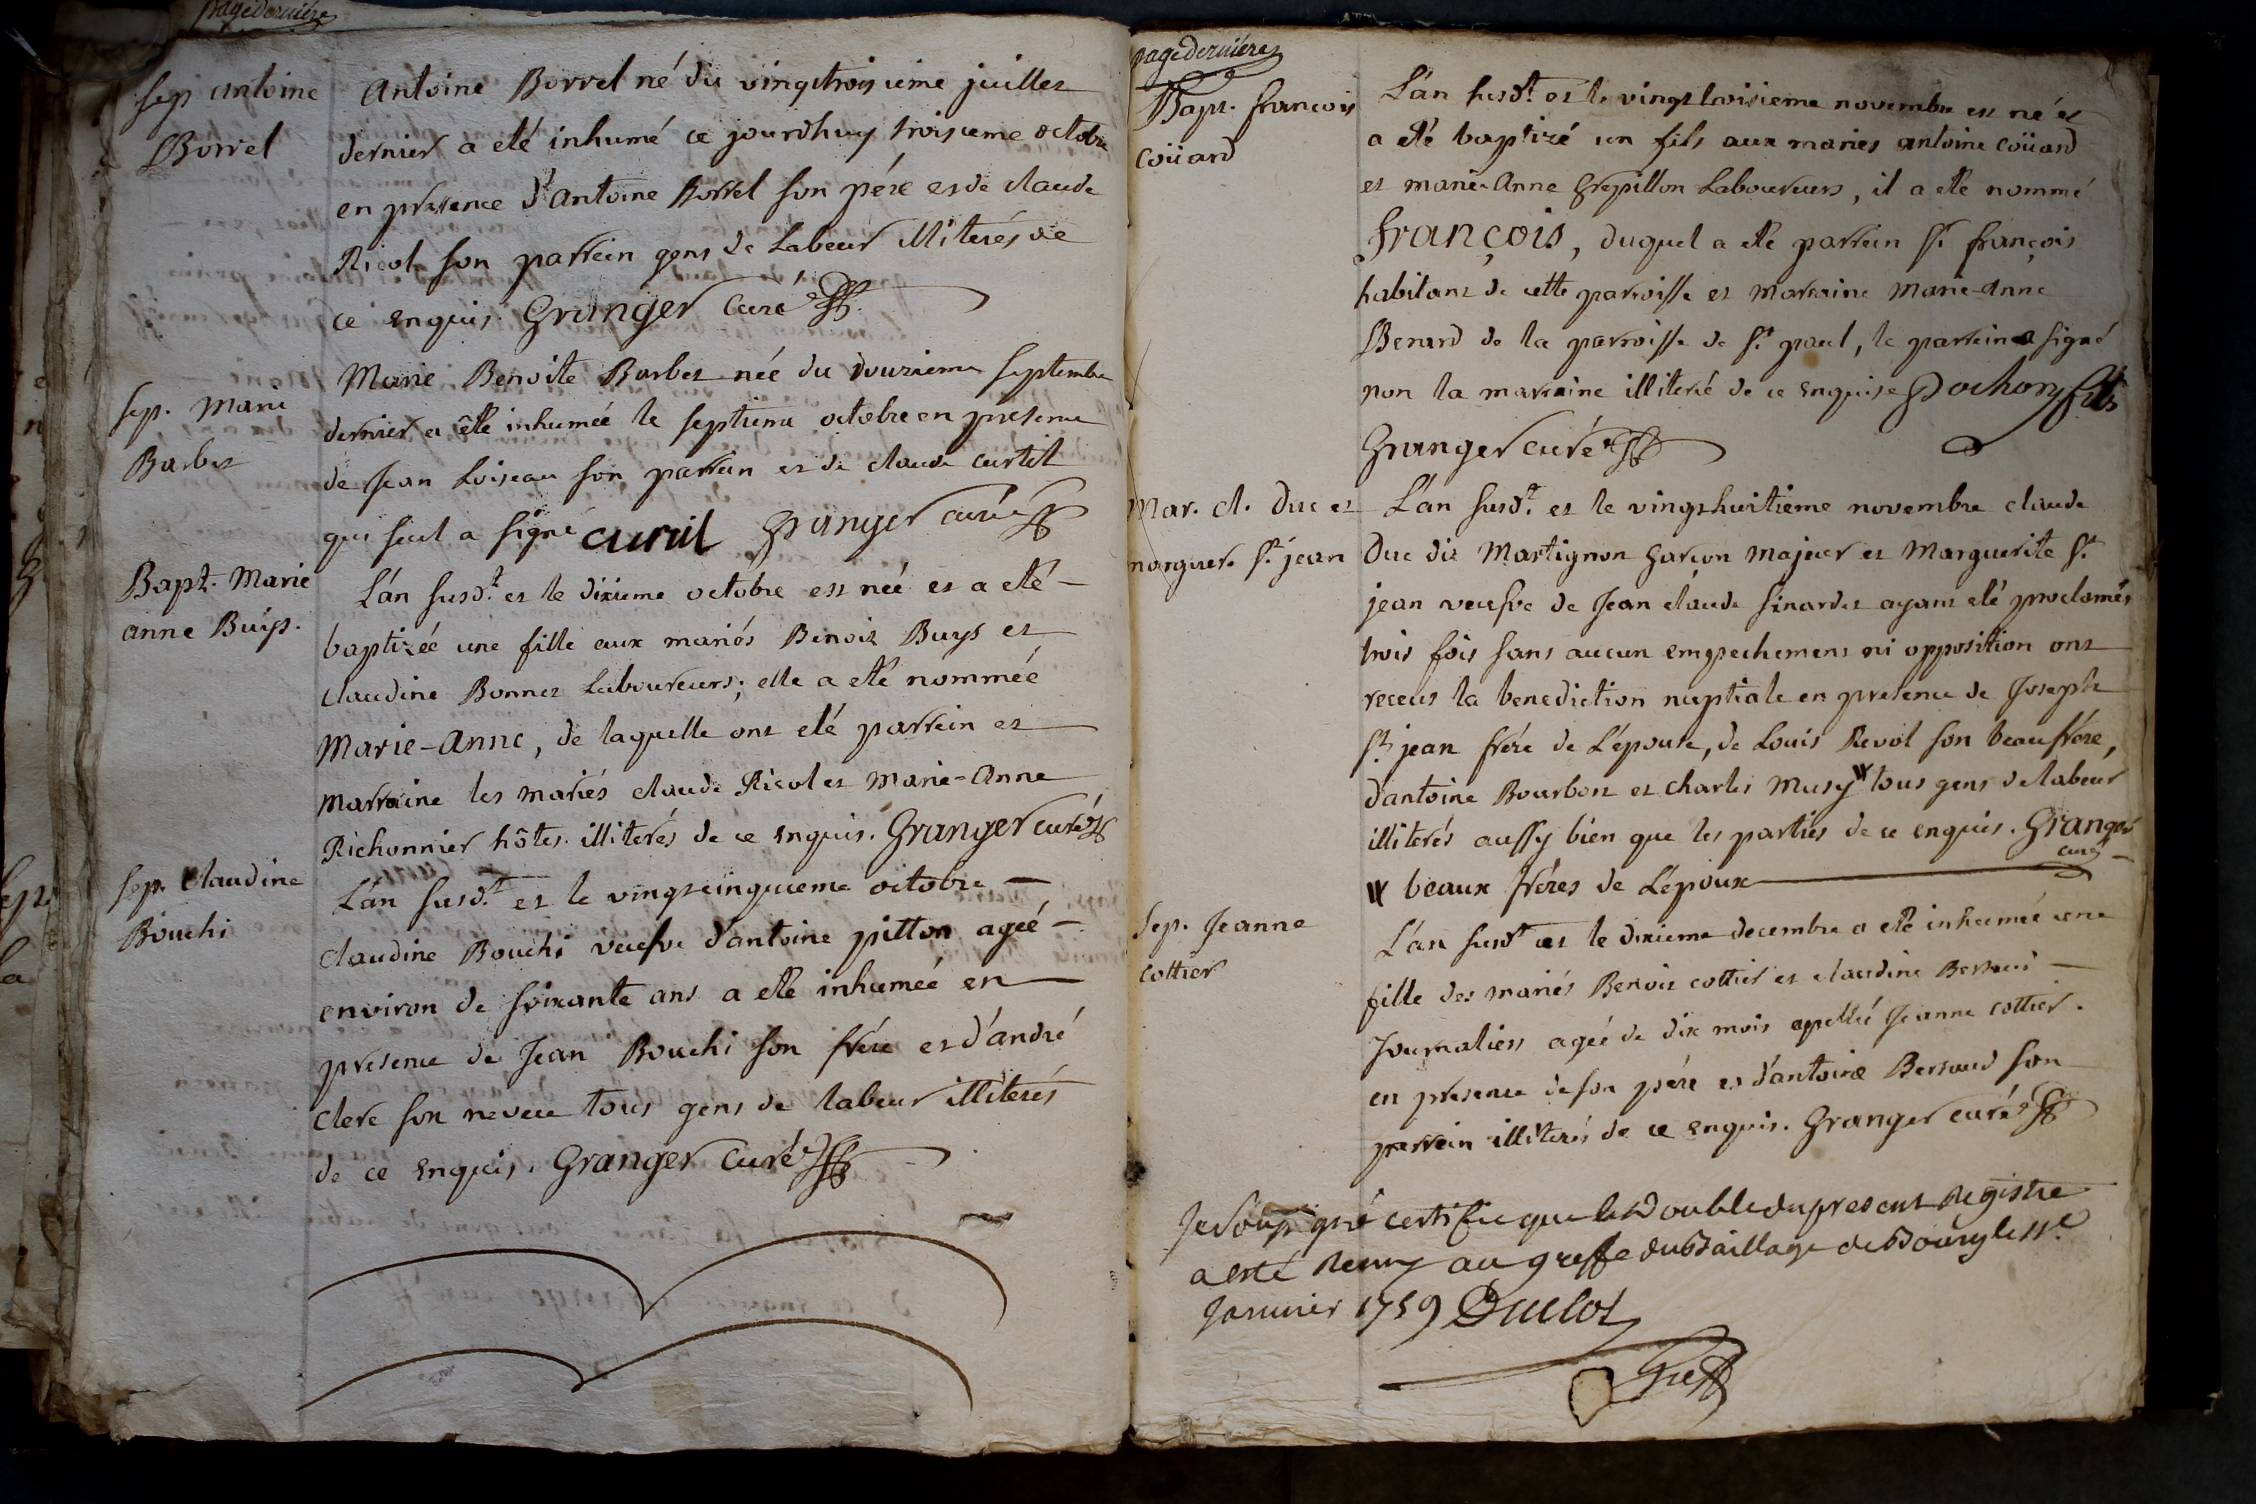 page derniére
Sep antoine
Borrel
Antoine Borrel né du vingttroisieme juillet
dernier a eté inhumé ce jourdhuy troisieme octobre
en presence d'antoine Borrel son pére et de claude
Ricol son parrein gens de Labeur illiterés de
ce enquis. Granger Curé
Sep. Marie
Barbet
Marie Benoite Barbet née du douzieme septembre
dernier a eté inhumée le septieme octobre en presence
de Jean Loiseau son parrein et de claude curtil
qui seul a signé curtil Granger curé
Bapt. Marie
anne Buys.
L'an susd.t et le dixieme octobre est née et a eté
baptizée une fille aux mariés Benoit Buys et
claudine Bonnet Laboureurs; elle a eté nommée
Marie-Anne, de laquelle ont eté parrein et
Marraine les mariés claude Ricol et Marie-Anne
Richonnier hôtes. illiterés de ce enquis. Granger curé
Sep. Claudine
Bouchi
L'an susd.t et le vingtcinquieme octobre
claudine Bouchi veufve d'antoine pitton ageé
environ de soixante ans a eté inhumée en
presence de Jean Bouchi son frére et d'andré
clere son neveu tous gens de labeur illiterés
de ce enquis. Granger Curé
page derniére
Bapt. francois
coüard
L'an susd.t et le vingttroisieme novembre est né et
a eté baptizé un fils aux mariés antoine coüard
et marie-Anne Grepillon Laboureurs, il a eté nommé
François, duquel a eté parrein S.r françois
habitant de cette parroisse et marraine Marie-Anne
Benard de la parroisse de S.t paul, le parrein a signé
non la marraine illiterée de ce enquise Dochon fils
Granger curé
Mar. cl. Duc et
marguer. S.t jean
L'an susd.t et le vingthuitieme novembre claude
Duc dit Martignon garcon majeur et Marguerite S.t
jean veufve de Jean claude Sinardet ayant eté proclamés
trois fois sans aucun empechement ni opposition ont
receus la benediction nuptiale en presence de Joseph
S.t jean frére de L'épouse, de Louis Revol son beaufrére,
d'antoine Bourbon et charles Musy tous gens de labeur
illiterés aussy bien que les parties de ce enquis. Granger
curé
beaux fréres de L'époux
Sep. Jeanne
cottier
L'an susd.t et le dixieme decembre a eté inhumée une
fille des mariés Benoit cottier et claudine Bersoud
Journaliers agée de dix mois apellée Jeanne cottier.
en presence de son pére et d'antoine Bersoud son
parrein illiterés de ce enquis. Granger curé
Je Soussigné certifie que le Double du present Registre
a esté Remis au greffe du Baillage de Bourg le 11.e
Janvier 1759 Duclot
Greff